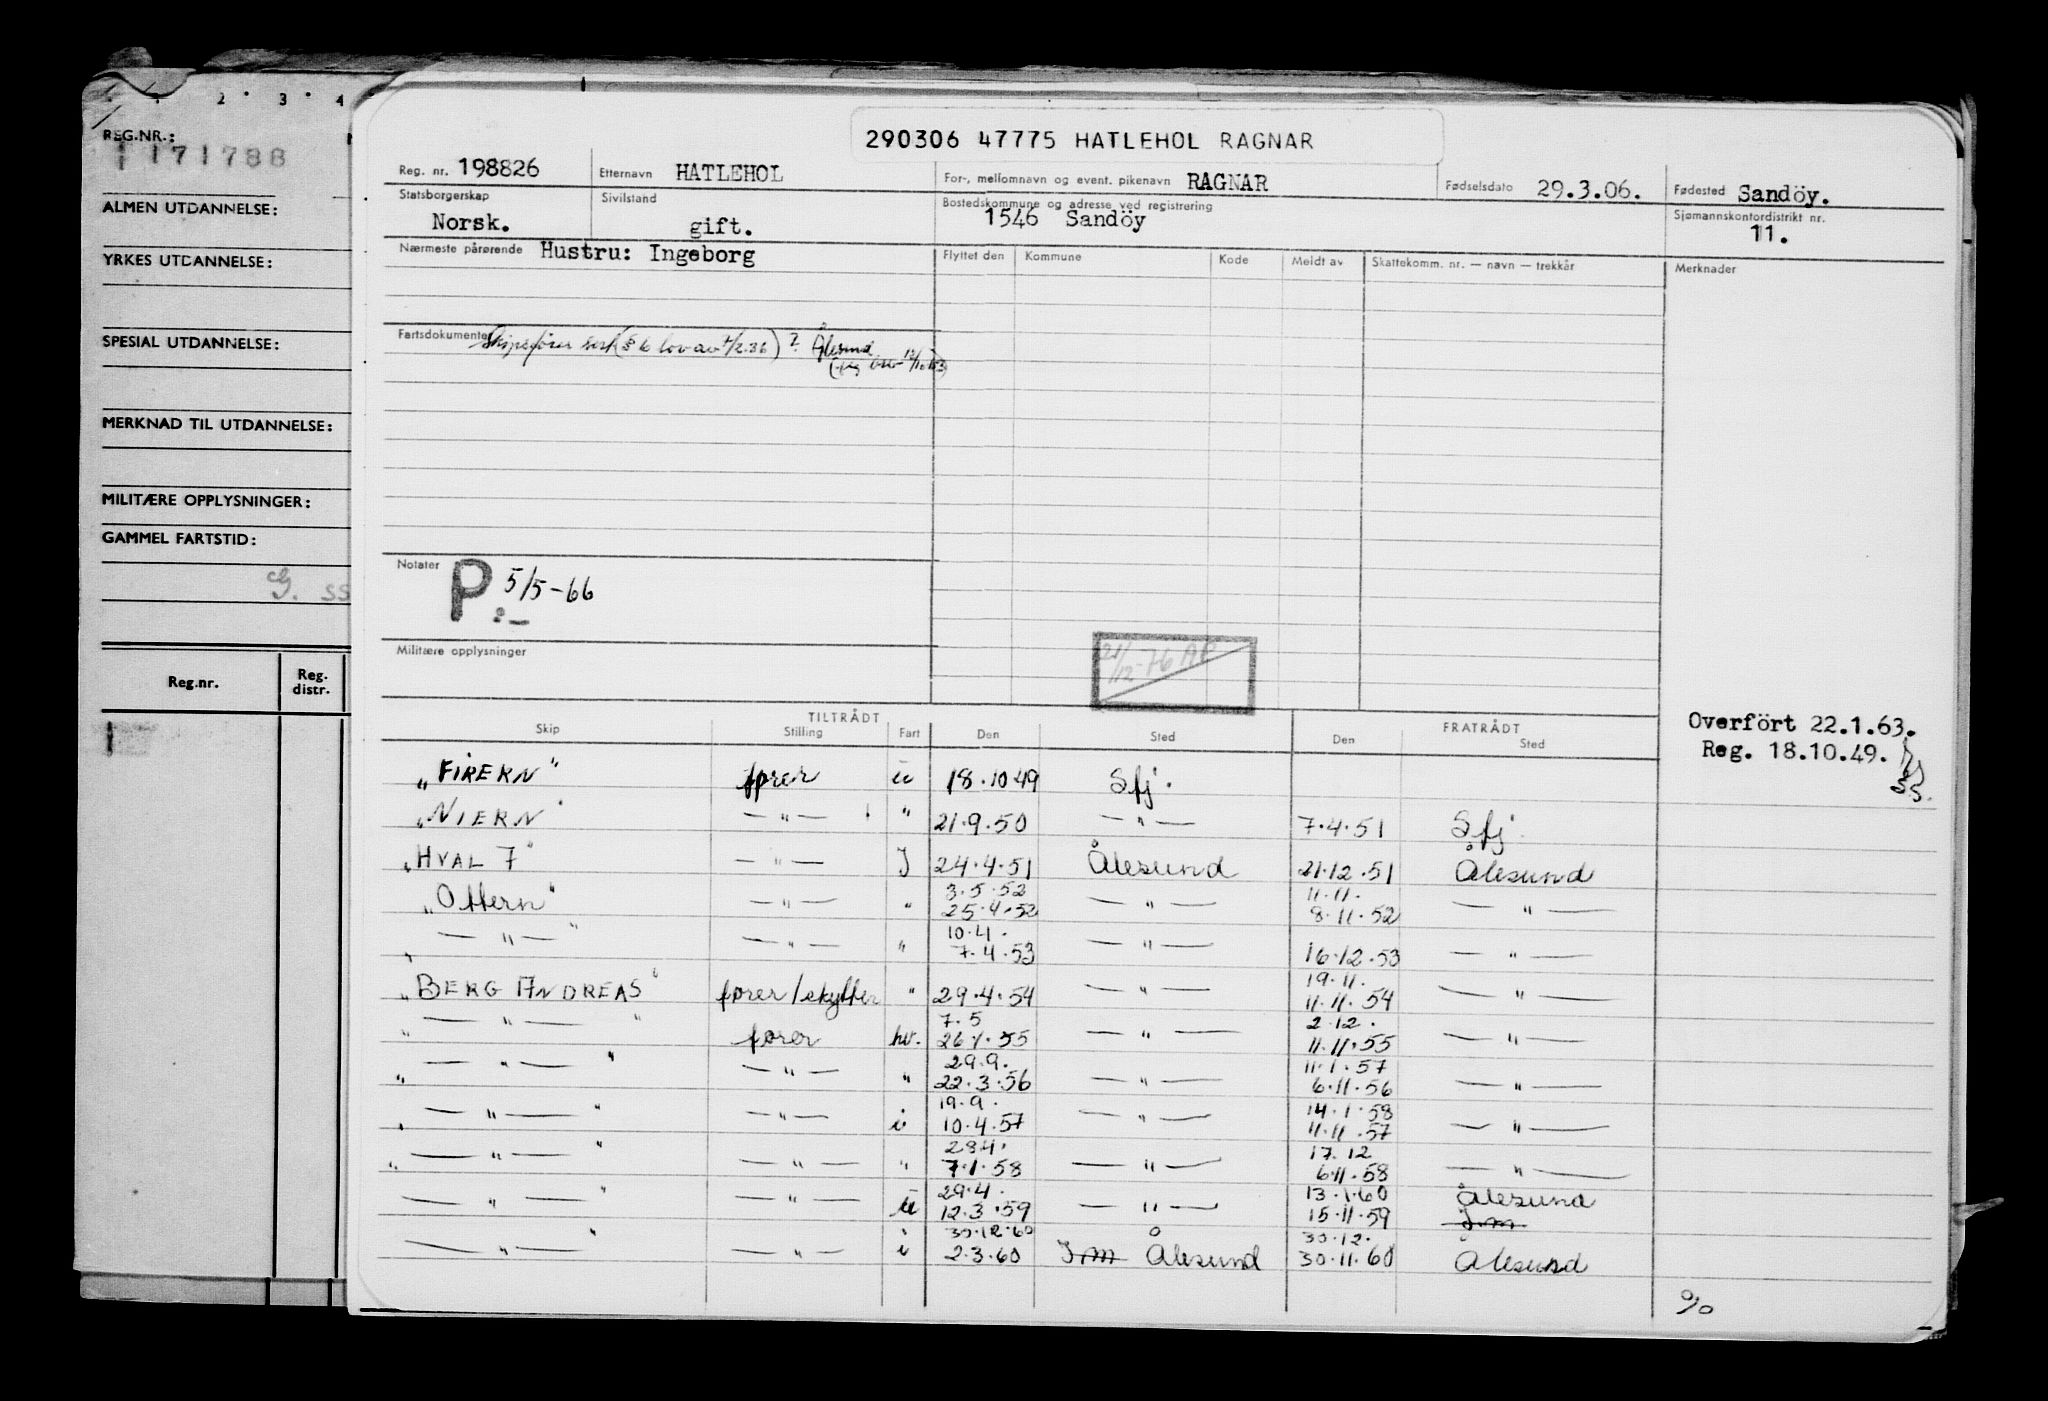 2 3 4
REG.NR.:
171788
ALMEN UTDANNELSE:
YRKES UTDANNELSE:
SPESIAL UTDANNELSE:
MERKNAD TIL UTDANNELSE:
MILITÆRE OPPLYSNINGER:
GAMMEL FARTSTID:
Reg.nr. Reg. distr.
290306 47775 HATLEHOL RAGNAR
Reg. nr. 198826 Etternavn HATLEHOL For-, mellomnavn og event. pikenavn RAGNAR Fødselsdato 29.3.06. Fødested Sandöy.
Statsborgerskap Norsk. Sivilstand gift. Bostedskommune og adresse ved registrering 1546 Sandöy Sjømannskontordistrikt nr. 11.
Nærmeste pårørende Hustru: Ingeborg Flyttet den Kommune Kode Meldt av Skattekomm. nr. — navn — trekkår Merknader
Fartsdokumenter Skipsfører sert (§ 6 lov av 7/2.36) ? Ålesund
Notater P:- 5/5-66
21/12-76
Militære opplysninger
Overfört 22.1.63.
Reg. 18.10.49.
TILTRÅDT FRATRÅDT
Skip Stilling Fart Den Sted Den Sted
"FIRERN" fører u 18.10 49 Sfj.
"NIERN" — " — " 21.9.50 — " — 7.4.51 Sfj.
"HVAL 7" — " — J 24.4.51 Ålesund 21.12.51 Ålesund
3.5.52 11.11.
"Ottern" — " — " 25.4.52 — " — 8.11.52 — " —
10.4.
" — " — " — " — " 7.4.53 — " — 16.12.53 — " —
19.11.
"BERG ANDREAS" fører/skytter " 29.4.54 — " — 11.11.54 — " —
7.5 2.12.
" — " — " fører hv. 26.1.55 — " — 11.11.55 — " —
29.9. 11.1.57
" — " — " — " — " 22.3.56 — " — 6.11.56 — " —
19.9. 14.1.58
" — " — " — " — i 10.4.57 — " — 11.11.57 — " —
28.4. 17.12
" — " — " — " — " 7.1.58 — " — 6.11.58 — " —
29.4. 13.1.60 Ålesund
— " — " — " — u 12.3.59 — " — 15.11.59 J.m
30.12.60 30.12.
— " — " — " — i 2.3.60 J m Ålesund 30.11.60 Ålesund